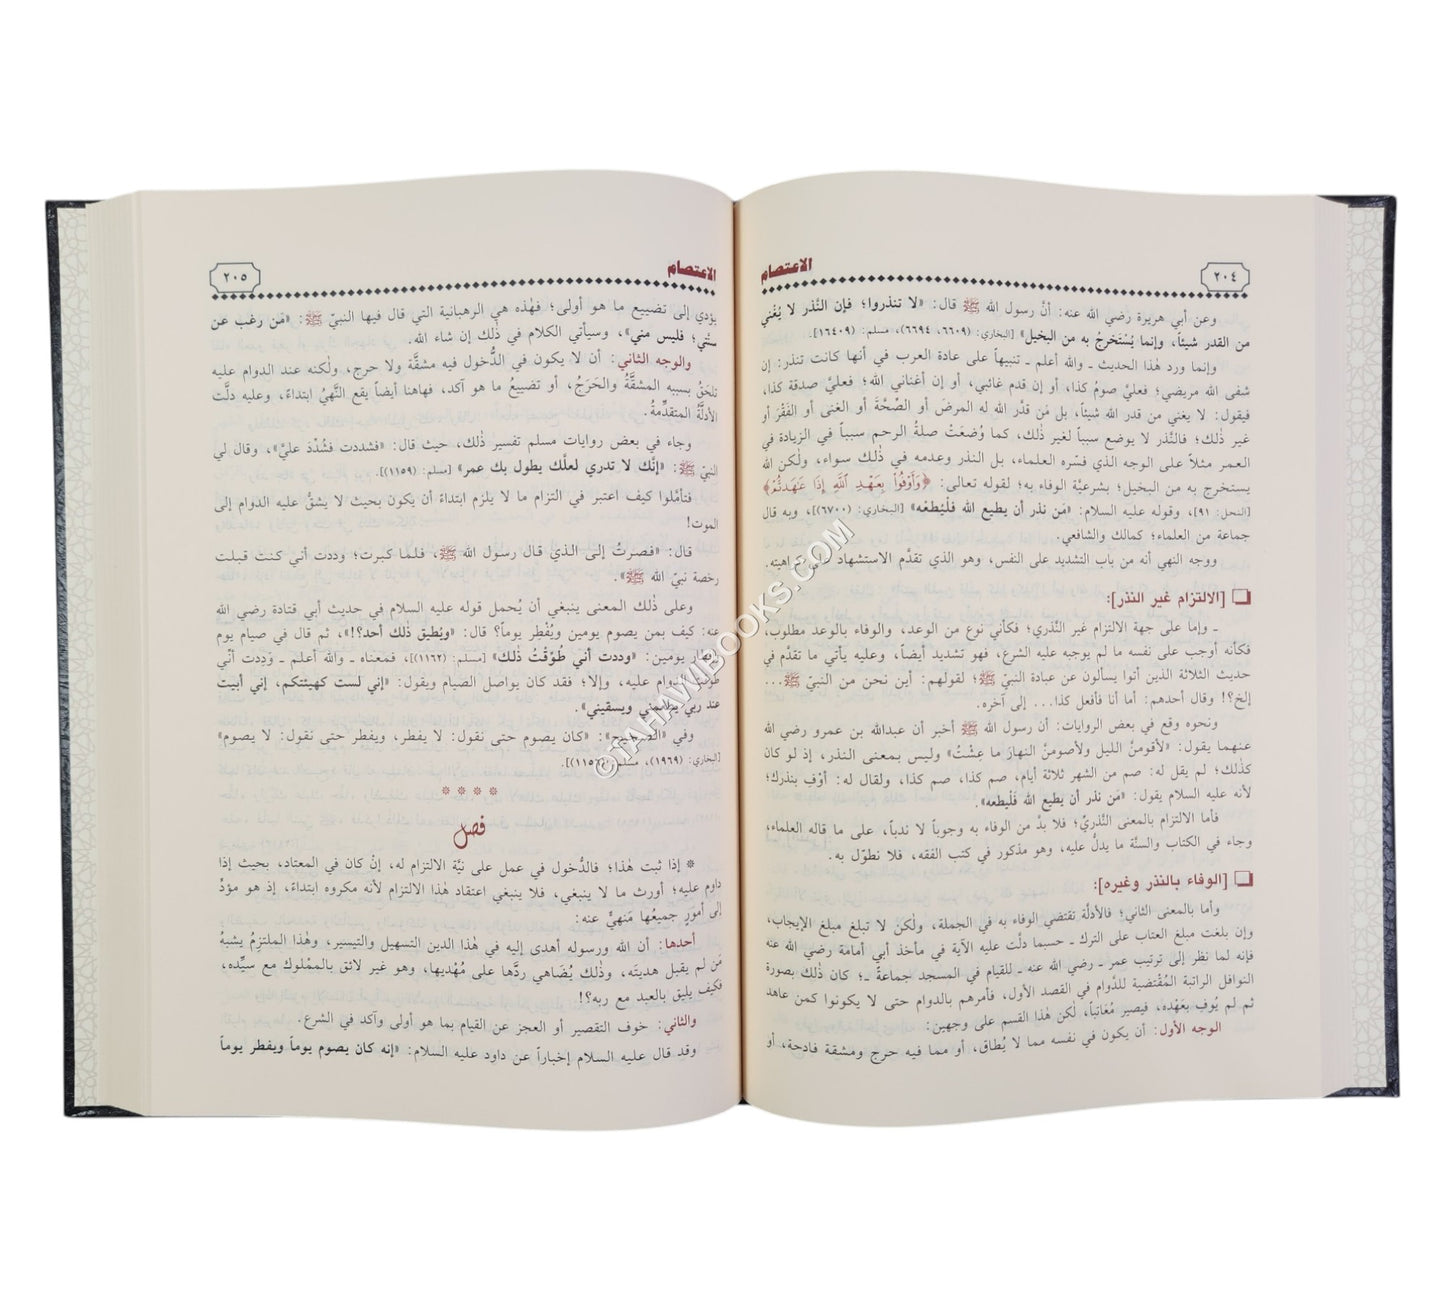 ٢٠٤
الاعتصام
وعن أبي هريرة رضي الله عنه: أنَّ رسول الله ﷺ قال: «لا تنذروا؛ فإن النَّذر لا يُغْني
من القدر شيئاً، وإنما يُسْتَخرجُ به من البخيل» [البخاري: (٦٦٠٩، ٦٦٩٤)، مسلم: (١٦٤٠٩].
وإنما ورد هٰذا الحديث ـ والله أعلم ـ تنبيهاً على عادة العرب في أنها كانت تنذر: إن
شفى الله مريضي؛ فعليَّ صومُ كذا، أو إن قدم غائبي، أو إن أغناني الله؛ فعليَّ صدقة كذا،
فيقول: لا يغني من قدر اللهِ شيئاً، بل مَن قدَّر الله له المرضَ أو الصِّحَّةَ أو الغنى أو الفَقْرَ أو
غير ذٰلك؛ فالنَّذر لا يوضع سبباً لغير ذٰلك، كما وُضعَتْ صلةُ الرحم سبباً في الزيادة في
العمر مثلاً على الوجه الذي فسّره العلماء، بل النذر وعدمه في ذٰلك سواء، ولٰكن الله
يستخرج به من البخيل؛ بشرعيَّة الوفاء به؛ لقوله تعالى: ﴿وَأَوْفُواْ بِعَهْدِ ٱللَّهِ إِذَا عَٰهَدتُّمْ﴾
[النحل: ٩١]، وقوله عليه السلام: «مَن نذر أن يطيع الله فلْيُطعْه» [البخاري: (٦٧٠٠)]، وبه قال
جماعة من العلماء؛ كمالك والشافعي.
ووجه النهي أنه من باب التشديد على النفس، وهو الذي تقدَّم الاستشهاد على كراهيته.
❏ [الالتزام غير النذر]:
ـ وإما على جهة الالتزام غير النَّذري؛ فكأني نوع من الوعد، والوفاء بالوعد مطلوب،
فكأنه أوجب على نفسه ما لم يوجبه عليه الشرع، فهو تشديد أيضاً، وعليه يأتي ما تقدَّم في
حديث الثلاثة الذين أتوا يسألون عن عبادة النبيّ ﷺ؛ لقولهم: أين نحن من النبيّ ﷺ...
إلخ؟! وقال أحدهم: أما أنا فأفعل كذا... إلى آخره.
ونحوه وقع في بعض الروايات: أن رسول الله ﷺ أخبر أن عبدالله بن عمرو رضي الله
عنهما يقول: «لأقومنَّ الليل ولأصومنَّ النهارَ ما عِشْتُ» وليس بمعنى النذر، إذ لو كان
كذلك؛ لم يقل له: صم من الشهر ثلاثة أيام، صم كذا، صم كذا، ولقال له: أوْفِ بنذرك؛
لأنه عليه السلام يقول: «مَن نذر أن يطيع الله فَلْيطعه».
فأما الالتزام بالمعنى النَّذريّ؛ فلا بدَّ من الوفاء به وجوباً لا ندباً، على ما قاله العلماء،
وجاء في الكتاب والسنَّة ما يدلُّ عليه، وهو مذكور في كتب الفقه، فلا نطوّل به.
❏ [الوفاء بالنذر وغيره]:
وأما بالمعنى الثاني؛ فالأدلَّة تقتضي الوفاء به في الجملة، ولٰكنْ لا تبلغ مبلغ الإيجاب،
وإن بلغت مبلغ العتاب على الترك ـ حسبما دلَّت عليه الآية في مأخذ أبي أمامة رضي الله عنه
فإنه لما نظر إلى ترتيب عمر ـ رضي الله عنه ـ للقيام في المسجد جماعةً ـ؛ كان ذٰلك بصورة
النوافل الراتبة المُقْتضية للدَّوام في القصد الأول، فأمرهم بالدوام حتى لا يكونوا كمن عاهد
ثم لم يُوفِ بعَهْده، فيصير مُعَاتباً، لٰكن هٰذا القسم على وجهين:
الوجه الأول: أن يكون في نفسه مما لا يُطاق، أو مما فيه حرج ومشقة فادحة، أو
الاعتصام
٢٠٥
يؤدي إلى تضييع ما هو أولى؛ فهٰذه هي الرهبانية التي قال فيها النبيّ ﷺ: «مَن رغب عن
سنَّتي؛ فليس مني»، وسيأتي الكلام في ذٰلك إن شاء الله.
والوجه الثاني: أن لا يكون في الدُّخول فيه مشقَّة ولا حرج، ولٰكنه عند الدوام عليه
تلحَقُ بسببه المشقَّةُ والحَرَجُ، أو تضييعُ ما هو آكد، فهاهنا أيضاً يقع النَّهيُ ابتداءً، وعليه دلَّت
الأدلَّةُ المتقدِّمةُ.
وجاء في بعض روايات مسلم تفسير ذٰلك، حيث قال: «فشددت فشُدّدَ عليَّ»، وقال لي
النبيّ ﷺ: «إنَّك لا تدري لعلَّك يطول بك عمر» [مسلم: (١١٥٩)].
فتأمَّلوا كيف اعتبر في التزام ما لا يلزم ابتداءً أن يكون بحيث لا يشقُّ عليه الدوام إلى
الموت!
قال: «فصرتُ إلى الذيَ قال رسول الله ﷺ، فلما كبرت؛ وددت أني كنت قبلت
رخصة نبيّ الله ﷺ».
وعلى ذٰلك المعنى ينبغي أن يُحمل قوله عليه السلام في حديث أبي قتادة رضي الله
عنه: كيف بمن يصوم يومين ويُفْطِر يوماً؟ قال: «ويُطيق ذٰلك أحد؟!»، ثم قال في صيام يوم
وإفطار يومين: «وددت أني طُوِّقْتُ ذٰلك» [مسلم: (١١٦٢)]، فمعناه ـ والله أعلم ـ وَددت أنّي
طوقت الدوام عليه، وإلا؛ فقد كان يواصل الصيام ويقول: «إني لست كهيئتكم، إني أبيت
عند ربي يطعمني ويسقيني».
وفي «الصحيح»: «كان يصوم حتى نقول: لا يفطر، ويفطر حتى نقول: لا يصوم»
[البخاري: (١٩٦٩)، مسلم: (١١٥٦)].
* * * *
فصل
* إذا ثبت هٰذا؛ فالدُّخول في عمل على نيَّة الالتزام له، إنْ كان في المعتاد، بحيث إذا
داوم عليه؛ أورث ما لا ينبغي، فلا ينبغي اعتقاد هٰذا الالتزام لأنه مكروه ابتداءً، إذ هو مؤدٍّ
إلى أمورٍ جميعُها مَنهيٌّ عنه:
أحدها: أن الله ورسوله أهدى إليه في هٰذا الدين التسهيل والتيسير، وهٰذا الملتزِمُ يشبهُ
مَن لم يقبل هديتَه، وذٰلك يُضَاهي ردَّها على مُهْديها، وهو غير لائق بالممْلوك مع سيِّده،
فكيف يليق بالعبد مع ربه؟!
والثاني: خوف التقصير أو العجز عن القيام بما هو أولى وآكد في الشرع.
وقد قال عليه السلام إخباراً عن داود عليه السلام: «إنه كان يصوم يوماً ويفطر يوماً
©TAHAWIBOOKS.COM